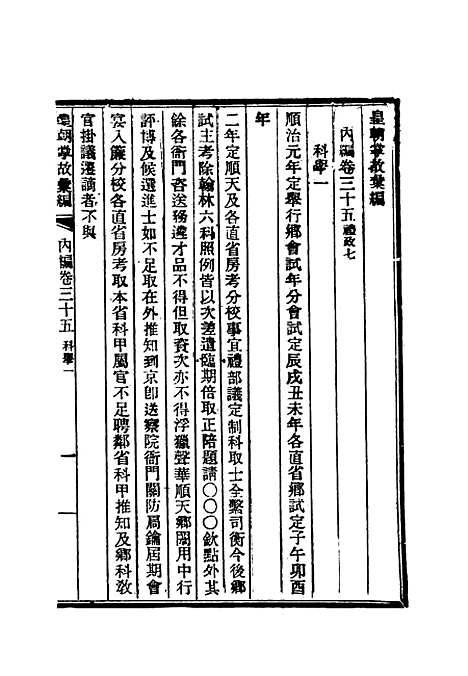 皇朝掌故彙編
內編卷三十五禮政七
科舉一
順治元年定舉行鄉會試年分會試定辰戌丑未年各直省鄉試定子午卯酉
年
二年定順天及各直省房考分校事宜禮部議定制科取士全繫司衡今後鄉
試主考除翰林六科照例皆以次差遣臨期倍取正陪題請〇〇〇欽點外其
餘各衙門咨送務遴才品不得但取資次亦不得浮獵聲華順天鄉闈用中行
評博及候選進士如不足取在外推知到京卽送察院衙門關防局鑰屆期會
宴入簾分校各直省房考取本省科甲屬官不足聘鄰省科甲推知及鄉科敎
官掛議遷謫者不與
皇朝掌故彙編
內編卷三十五
科舉一
一